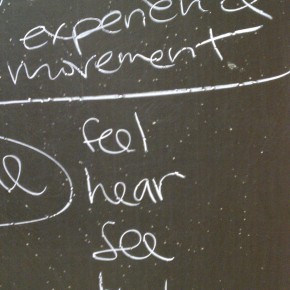 experience
movement
feel
hear
see